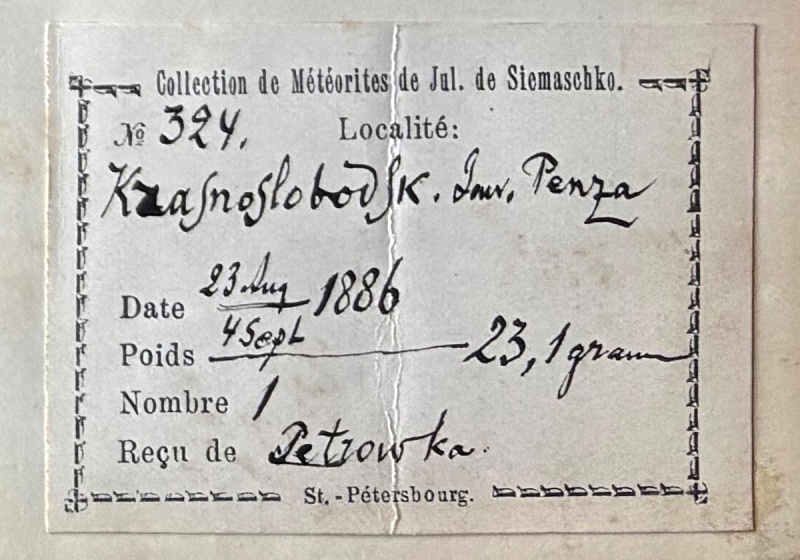 Collection de Météorites de Jul. de Siemaschko.
№ 324. Localité:
Krasnoslobodsk. Gouv. Penza
Date 23 Aug 1886
4 Sept
Poids 23,1 gram
Nombre 1
Reçu de Petrowka.
St.-Pétersbourg.